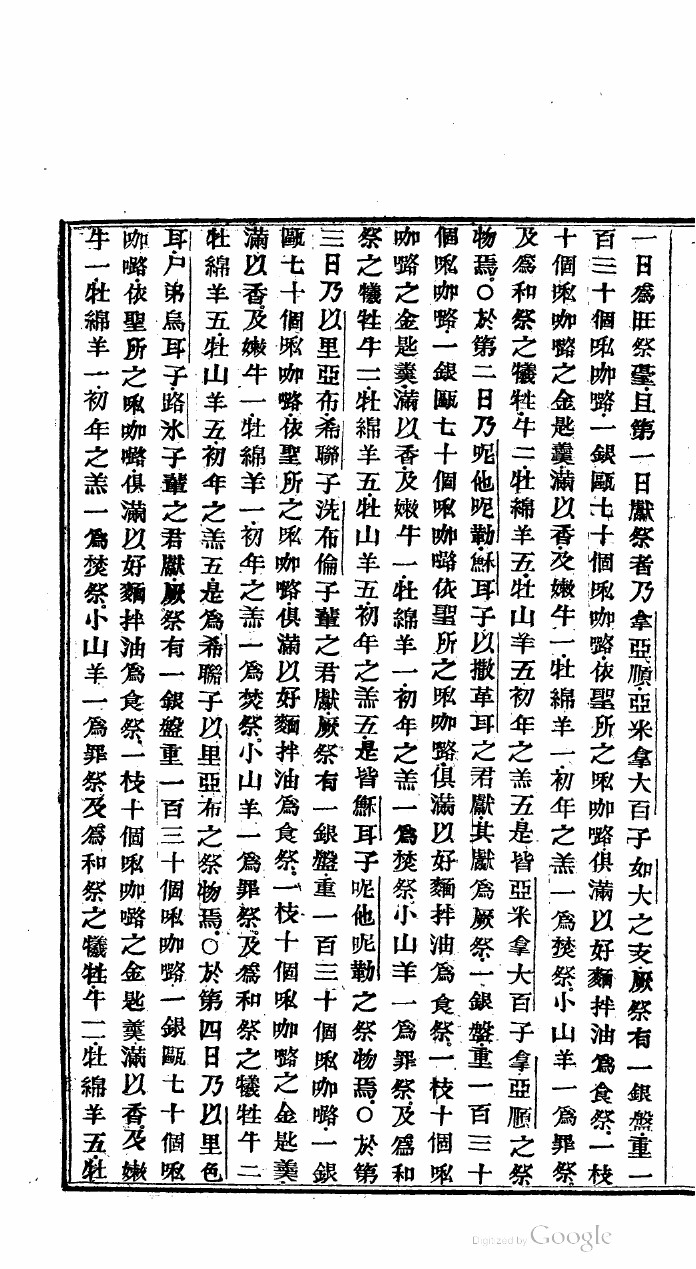 一日爲旺祭臺且第一日獻祭者乃拿亞順亞米拿大百子如大之支厥祭有一銀盤重一
百三十個𠹌咖嚕一銀甌七十個𠹌咖嚕依聖所之𠹌咖嚕俱滿以好麵拌油爲食祭一枝
十個𠹌咖嚕之金匙羹滿以香及嫩牛一牡綿羊一初年之羔一爲焚祭小山羊一爲罪祭
及爲和祭之犧牲牛二牡綿羊五牡山羊五初年之羔五是皆亞米拿大百子拿亞順之祭
物焉○於第二日乃呢他呢勒穌耳子以撒革耳之君獻其獻爲厥祭一銀盤重一百三十
個𠹌咖嚕一銀甌七十個𠹌咖嚕依聖所之𠹌咖嚕俱滿以好麵拌油爲食祭一枝十個𠹌
咖嚕之金匙羹滿以香及嫩牛一牡綿羊一初年之羔一爲焚祭小山羊一爲罪祭及爲和
祭之犧牲牛二牡綿羊五牡山羊五初年之羔五是皆穌耳子呢他呢勒之祭物焉○於第
三日乃以里亞布希聯子洗布倫子輩之君獻厥祭有一銀盤重一百三十個𠹌咖嚕一銀
甌七十個𠹌咖嚕依聖所之𠹌咖嚕俱滿以好麵拌油爲食祭一枝十個𠹌咖嚕之金匙羹
滿以香及嫩牛一牡綿羊一初年之羔一爲焚祭小山羊一爲罪祭及爲和祭之犧牲牛二
牡綿羊五牡山羊五初年之羔五是爲希聯子以里亞布之祭物焉○於第四日乃以里色
耳戶弟烏耳子路氷子輩之君獻厥祭有一銀盤重一百三十個𠹌咖嚕一銀甌七十個𠹌
咖嚕依聖所之𠹌咖嚕俱滿以好麵拌油爲食祭一枝十個𠹌咖嚕之金匙羹滿以香及嫩
牛一牡綿羊一初年之羔一爲焚祭小山羊一爲罪祭及爲和祭之犧牲牛二牡綿羊五牡
Digitized by Google